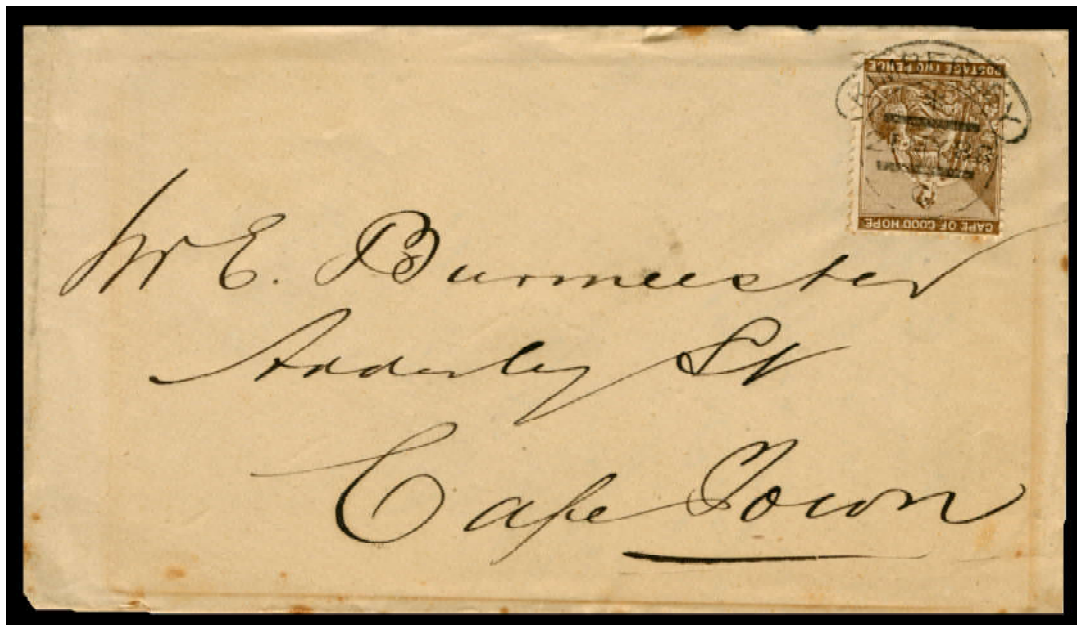 KIMBERLEY
POSTAGE TWO PENCE
CAPE OF GOOD HOPE
Mr E. Burmeester
Adderley St
Cape Town